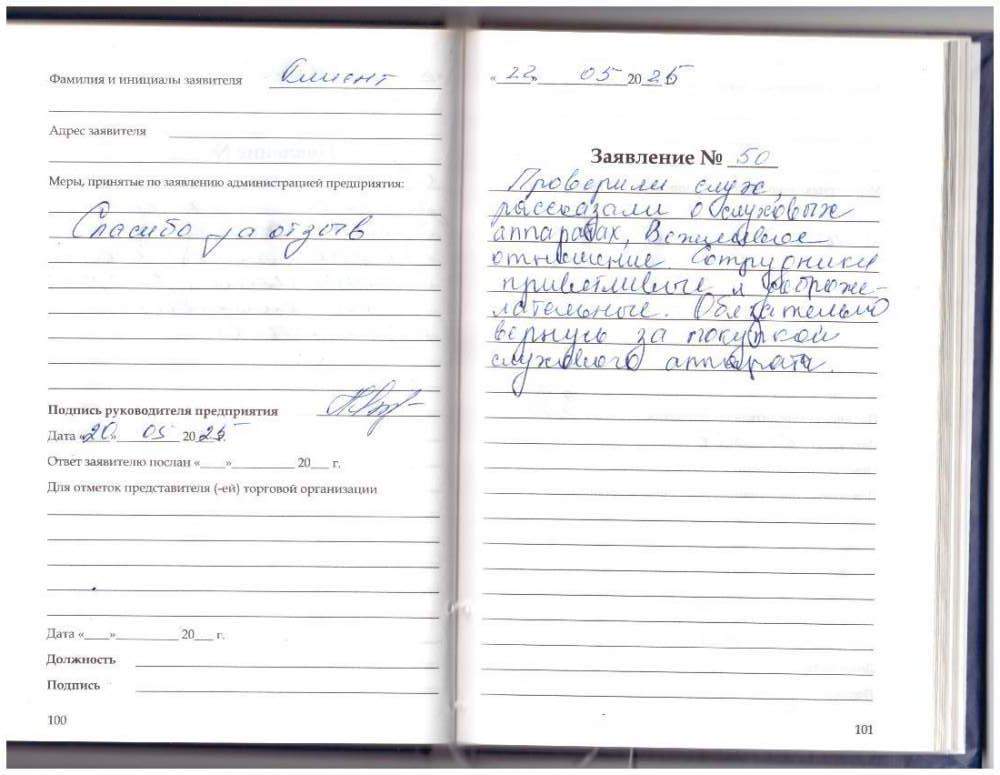 Фамилия и инициалы заявителя Клиент
Адрес заявителя
Меры, принятые по заявлению администрацией предприятия:
Спасибо за отзыв
Подпись руководителя предприятия
Дата «20» 05 2025г.
Ответ заявителю послан «____»__________ 20___ г.
Для отметок представителя (-ей) торговой организации
Дата «____»__________ 20___ г.
Должность
Подпись
100
«22» 05 2025
Заявление № 50
Проверили слух,
рассказали о слуховых
аппаратах, Вежливое
отношение. Сотрудники
приветливые и доброже-
лательные. Обязательно
вернусь за покупкой
слухового аппарата.
101